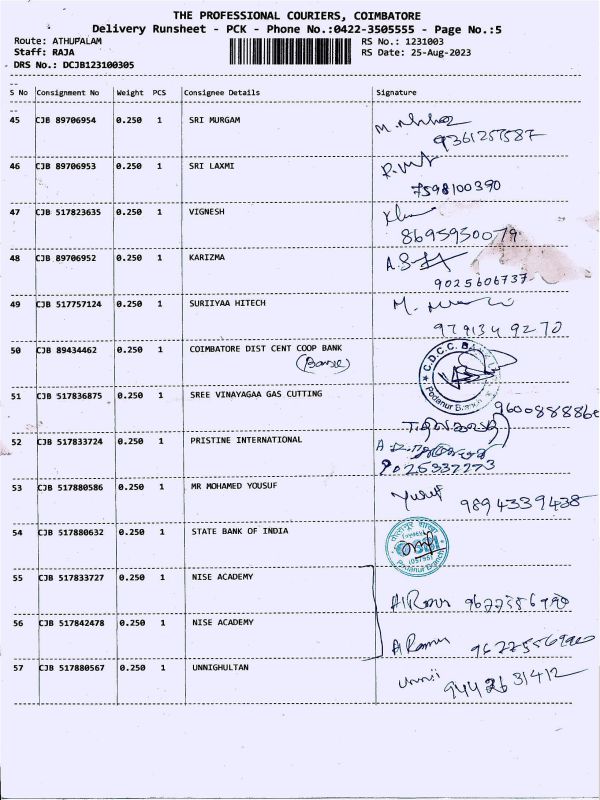 THE PROFESSIONAL COURIERS, COIMBATORE
Delivery Runsheet - PCK - Phone No.:0422-3505555 - Page No.:5
Route: ATHUPALAM RS No.: 1231003
Staff: RAJA RS Date: 25-Aug-2023
DRS No.: DCJB123100305
S No Consignment No Weight PCS Consignee Details Signature
45 CJB 89706954 0.250 1 SRI MURGAM
9361257587
46 CJB 89706953 0.250 1 SRI LAXMI
7598100390
47 CJB 517823635 0.250 1 VIGNESH
8695930079
48 CJB 89706952 0.250 1 KARIZMA
9025606737
49 CJB 517757124 0.250 1 SURIIYAA HITECH
979134 9270
50 CJB 89434462 0.250 1 COIMBATORE DIST CENT COOP BANK
C.D.C.C. Podanur Branch
51 CJB 517836875 0.250 1 SREE VINAYAGAA GAS CUTTING
52 CJB 517833724 0.250 1 PRISTINE INTERNATIONAL
9025337273
53 CJB 517880586 0.250 1 MR MOHAMED YOUSUF
Yusuf 9894339438
54 CJB 517880632 0.250 1 STATE BANK OF INDIA
Podanur Branch
55 CJB 517833727 0.250 1 NISE ACADEMY
56 CJB 517842478 0.250 1 NISE ACADEMY
57 CJB 517880567 0.250 1 UNNIGHULTAN
unnii 9442631412